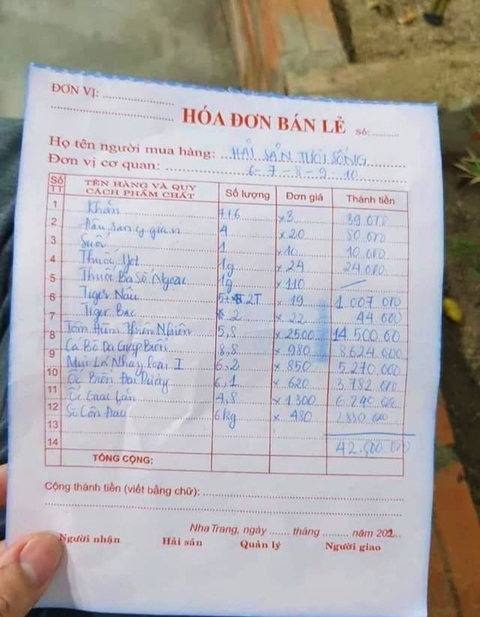 ĐƠN VỊ: ........................
........................
HÓA ĐƠN BÁN LẺ Số: ........
Họ tên người mua hàng: HẢI SẢN TƯƠI SỐNG
Đơn vị cơ quan: 6-7-8-9-10
Số TT TÊN HÀNG VÀ QUY CÁCH PHẨM CHẤT Số lượng Đơn giá Thành tiền
1 Khăn 7+6 ×3 39.000
2 4 ×20 80.000
3 Suối 1 ×10 10.000
4 Thuốc 1g × 24 24.000
5 Thuốc Ba Số Ngoại 1g × 110
6 Tiger Nâu 2T × 19 1.007.000
7 Tiger Bạc 2 × 22 44.000
8 Tôm Hùm Thiên Nhiên 5,8 × 2500 14.500.000
9 Cá Bò Da Giáp Biển 8,8 × 980 8.624.000
10 Loại I 6,2 × 850 5.270.000
11 Ốc Biển 6,1 × 620 3.782.000
12 Ốc 4,8 × 1.300 6.240.000
13 Sò Côn Đảo 6kg × 480 2.880.000
14 42.500.000
TỔNG CỘNG:
Cộng thành tiền (viết bằng chữ): ........................
Nha Trang, ngày ...... tháng ...... năm 202
Người nhận Hải sản Quản lý Người giao